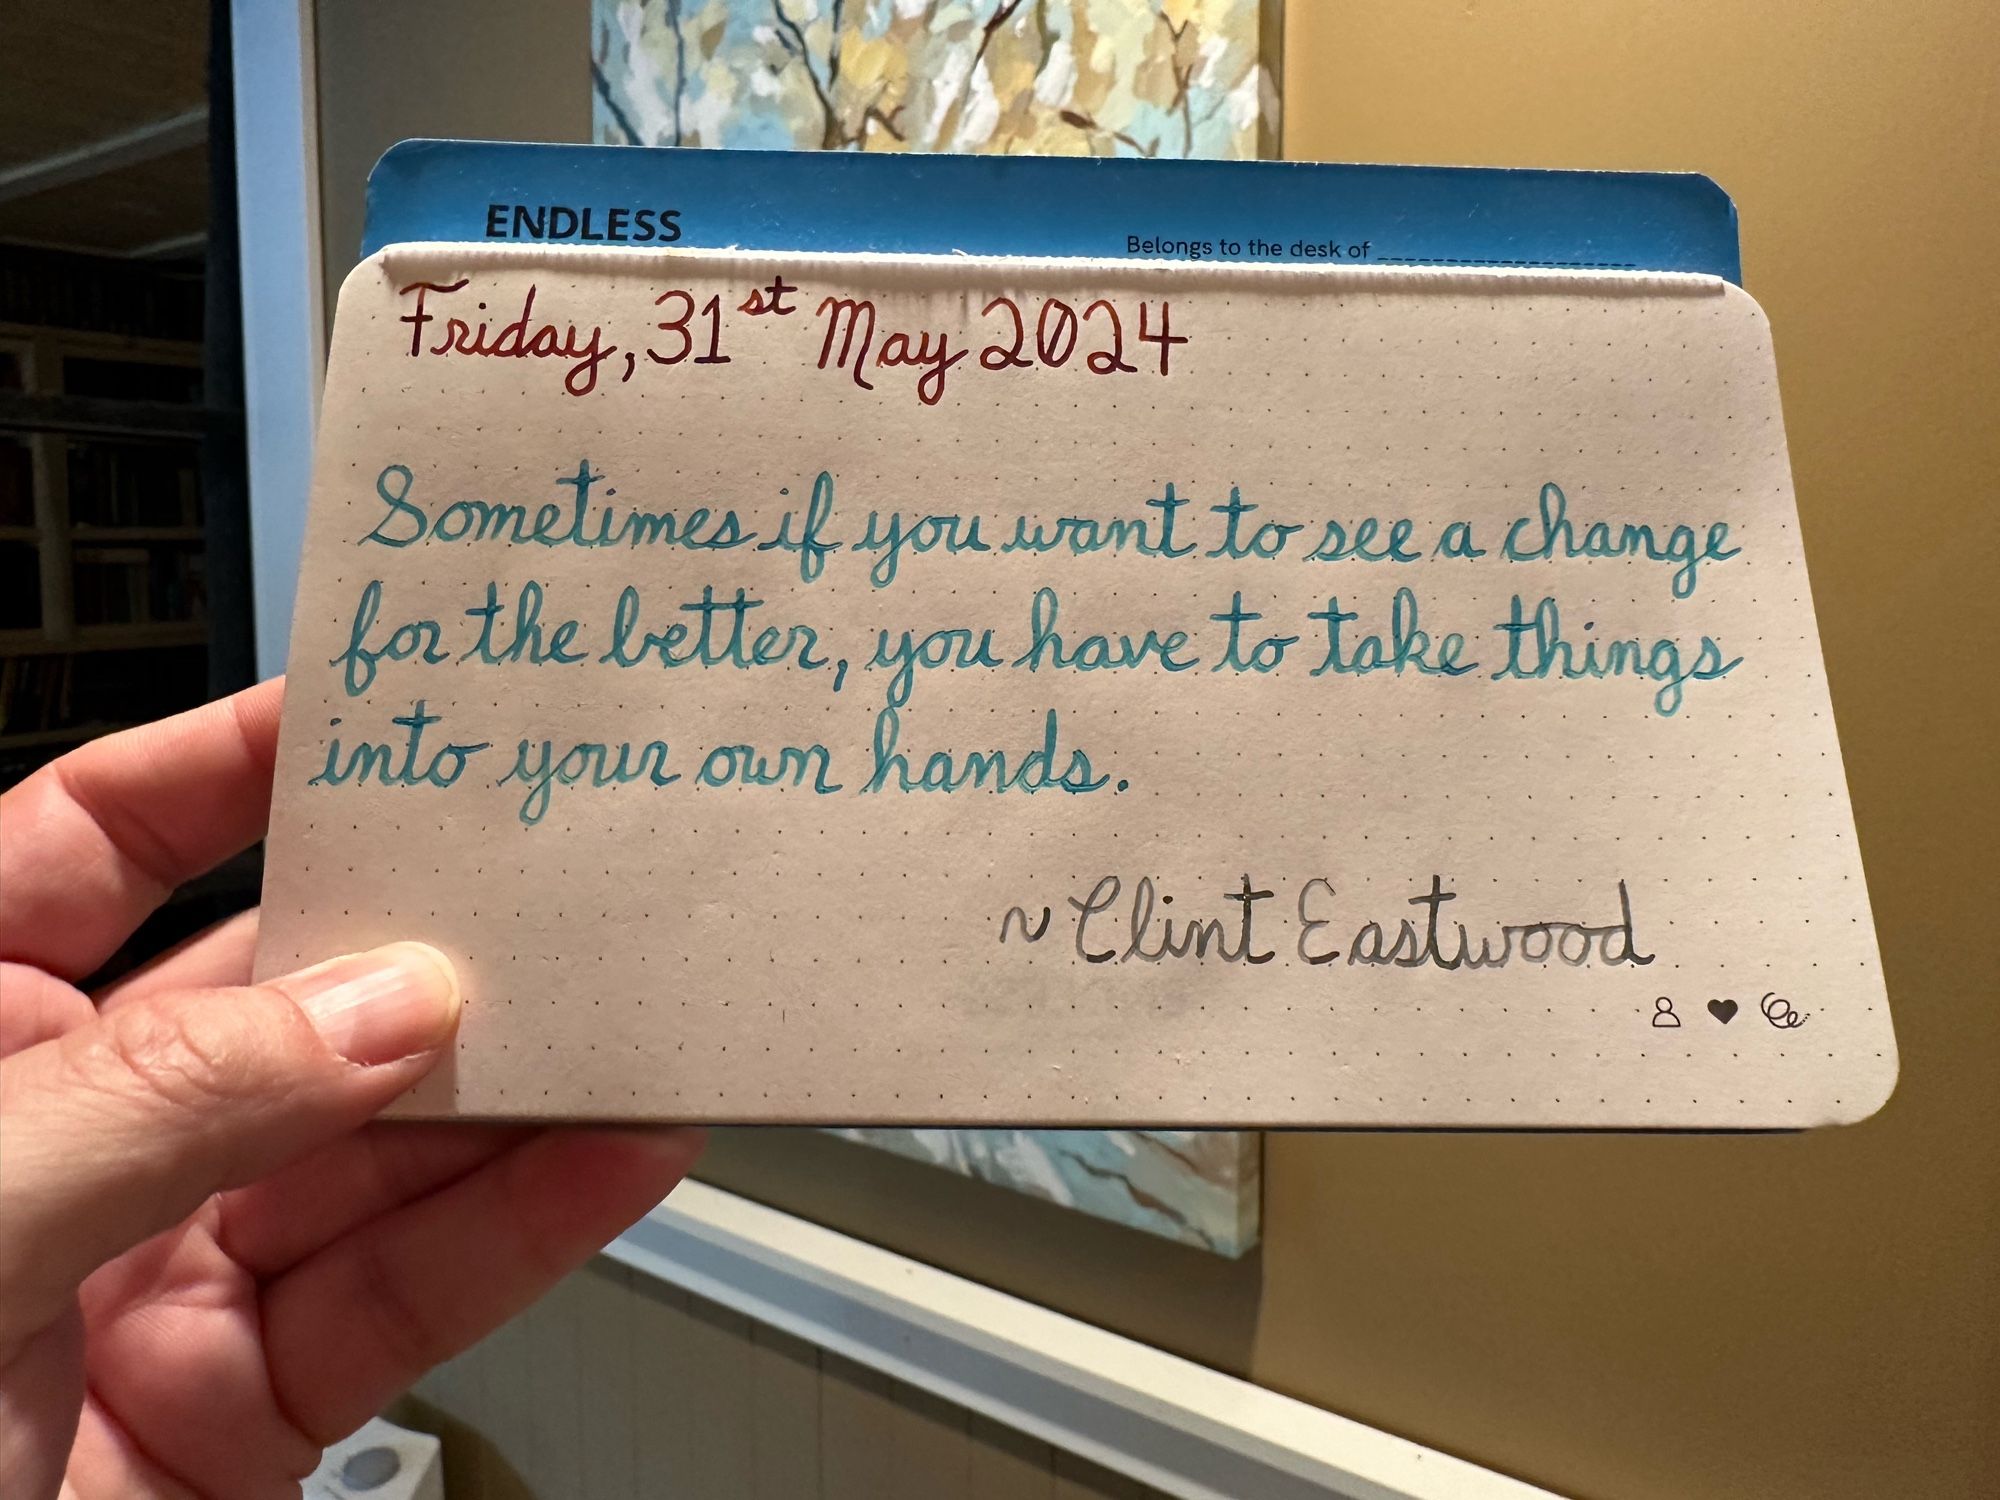 ENDLESS
Belongs to the desk of
Friday, 31st May 2024
Sometimes if you want to see a change
for the better, you have to take things
into your own hands.
~ Clint Eastwood